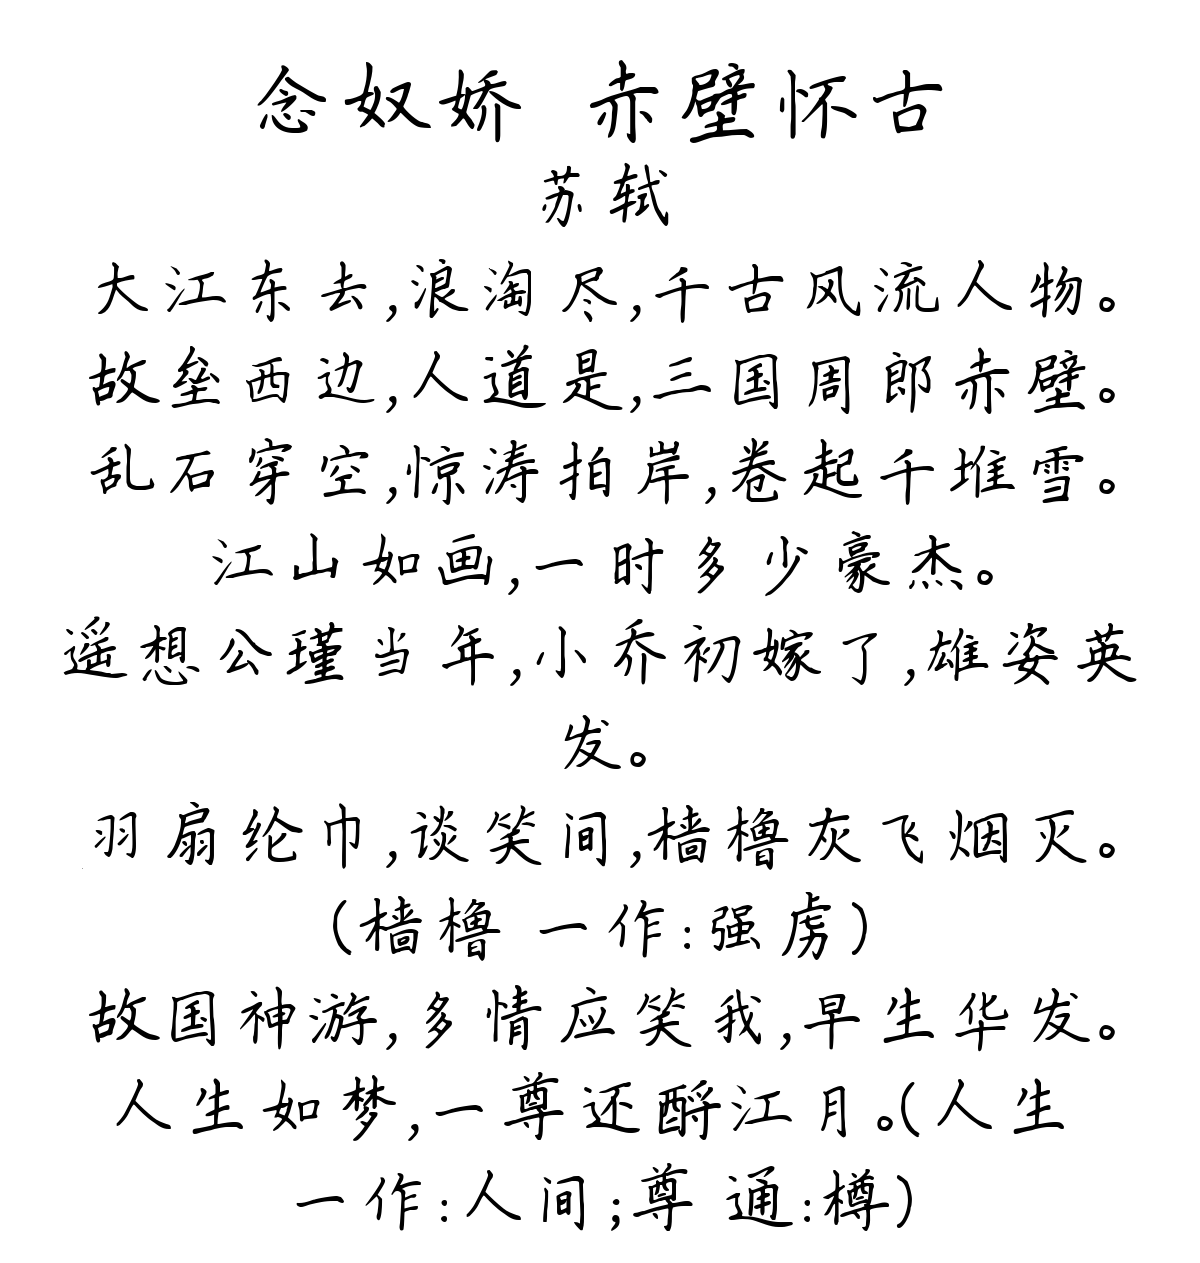 念奴娇 赤壁怀古
苏轼
大江东去,浪淘尽,千古风流人物。
故垒西边,人道是,三国周郎赤壁。
乱石穿空,惊涛拍岸,卷起千堆雪。
江山如画,一时多少豪杰。
遥想公瑾当年,小乔初嫁了,雄姿英
发。
羽扇纶巾,谈笑间,樯橹灰飞烟灭。
(樯橹 一作:强虏)
故国神游,多情应笑我,早生华发。
人生如梦,一尊还酹江月。(人生
一作:人间;尊 通:樽)